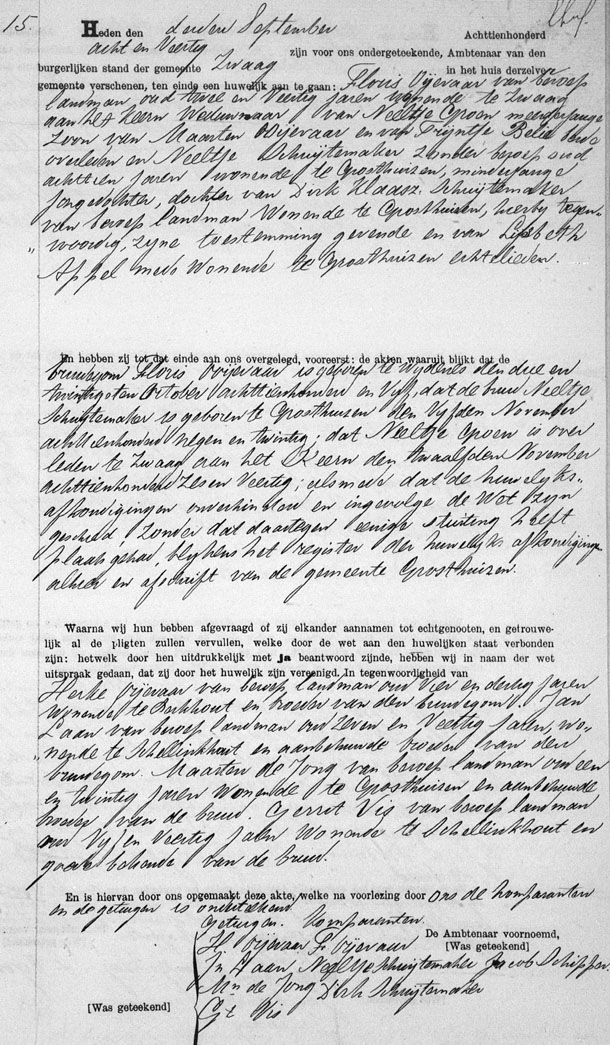 15.
Heden den derden September Achttienhonderd
acht en Veertig zijn voor ons ondergeteekende, Ambtenaar van den
burgerlijken stand der gemeente Zwaag in het huis derzelver
gemeente verschenen, ten einde een huwelijk aan te gaan: Floris Ooijevaar van beroep
landman oud twee en Veertig jaren wonende te Zwaag
aan het Keern Weduwnaar van Neeltje Groen meerderjarige
Zoon van Maarten Ooijevaar en van Trijntje Belie beide
overleden en Neeltje Schuijtemaker zonder beroep oud
achttien jaren wonende te Grosthuizen, minderjarige
Jongedochter, dochter van Dirk Klaasz. Schuijtemaker
van beroep landman Wonende te Grosthuizen, hierbij tegen-
woordig, zijne toestemming gevende en van Lijsbeth
Appel mede Wonende te Grosthuizen echtelieden.
En hebben zij tot dat einde aan ons overgelegd, vooreerst: de akten waaruit blijkt dat de
bruidegom Floris Ooijevaar is geboren te Wijdenes den drie en
twintigsten October achttienhonderd en Vijf, dat de bruid Neeltje
Schuijtemaker is geboren te Grosthuizen den Vijfden November
achttienhonderd negen en twintig; dat Neeltje Groen is over
leden te Zwaag aan het Keern den twaalfden November
achttienhonderd Zes en Veertig; alsmede dat de huwelijks-
afkondigingen onverhinderd en ingevolge de Wet zijn
geschied, zonder dat daartegen eenige stuiting heeft
plaats gehad, blijkens het register der huwelijks afkondigingen
alhier en afschrift van de gemeente Grosthuizen.
Waarna wij hun hebben afgevraagd of zij elkander aannamen tot echtgenooten, en getrouwe-
lijk al de pligten zullen vervullen, welke door de wet aan den huwelijken staat verbonden
zijn: hetwelk door hen uitdrukkelijk met ja beantwoord zijnde, hebben wij in naam der wet
uitspraak gedaan, dat zij door het huwelijk zijn vereenigd. In tegenwoordigheid van
Herke Ooijevaar van beroep landman oud Vier en dertig jaren
Wonende te Berkhout en broeder van den bruidegom. Jan
Laan van beroep landman oud Zeven en Veertig jaren, wo-
nende te Schellinkhout en aanbehuwde broeder van den
bruidegom. Maarten de Jong van beroep landman oud een
en twintig jaren Wonende te Grosthuizen en aanbehuwde
broeder van de bruid. Gerrit Vis van beroep landman
oud Vijf en Veertig jaren Wonende te Schellinkhout en
goede bekende van de bruid.
En is hiervan door ons opgemaakt deze akte, welke na voorlezing door ons de komparanten
en de getuigen is onderteekend
Getuigen. Komparanten.
De Ambtenaar voornoemd,
H Ooijevaar F Ooijevaar [Was geteekend]
Jn Laan, Neeltje Schuijtemaker Jacob Schipper.
Mn de Jong Dirk Schuijtemaker
[Was geteekend] Gt Vis